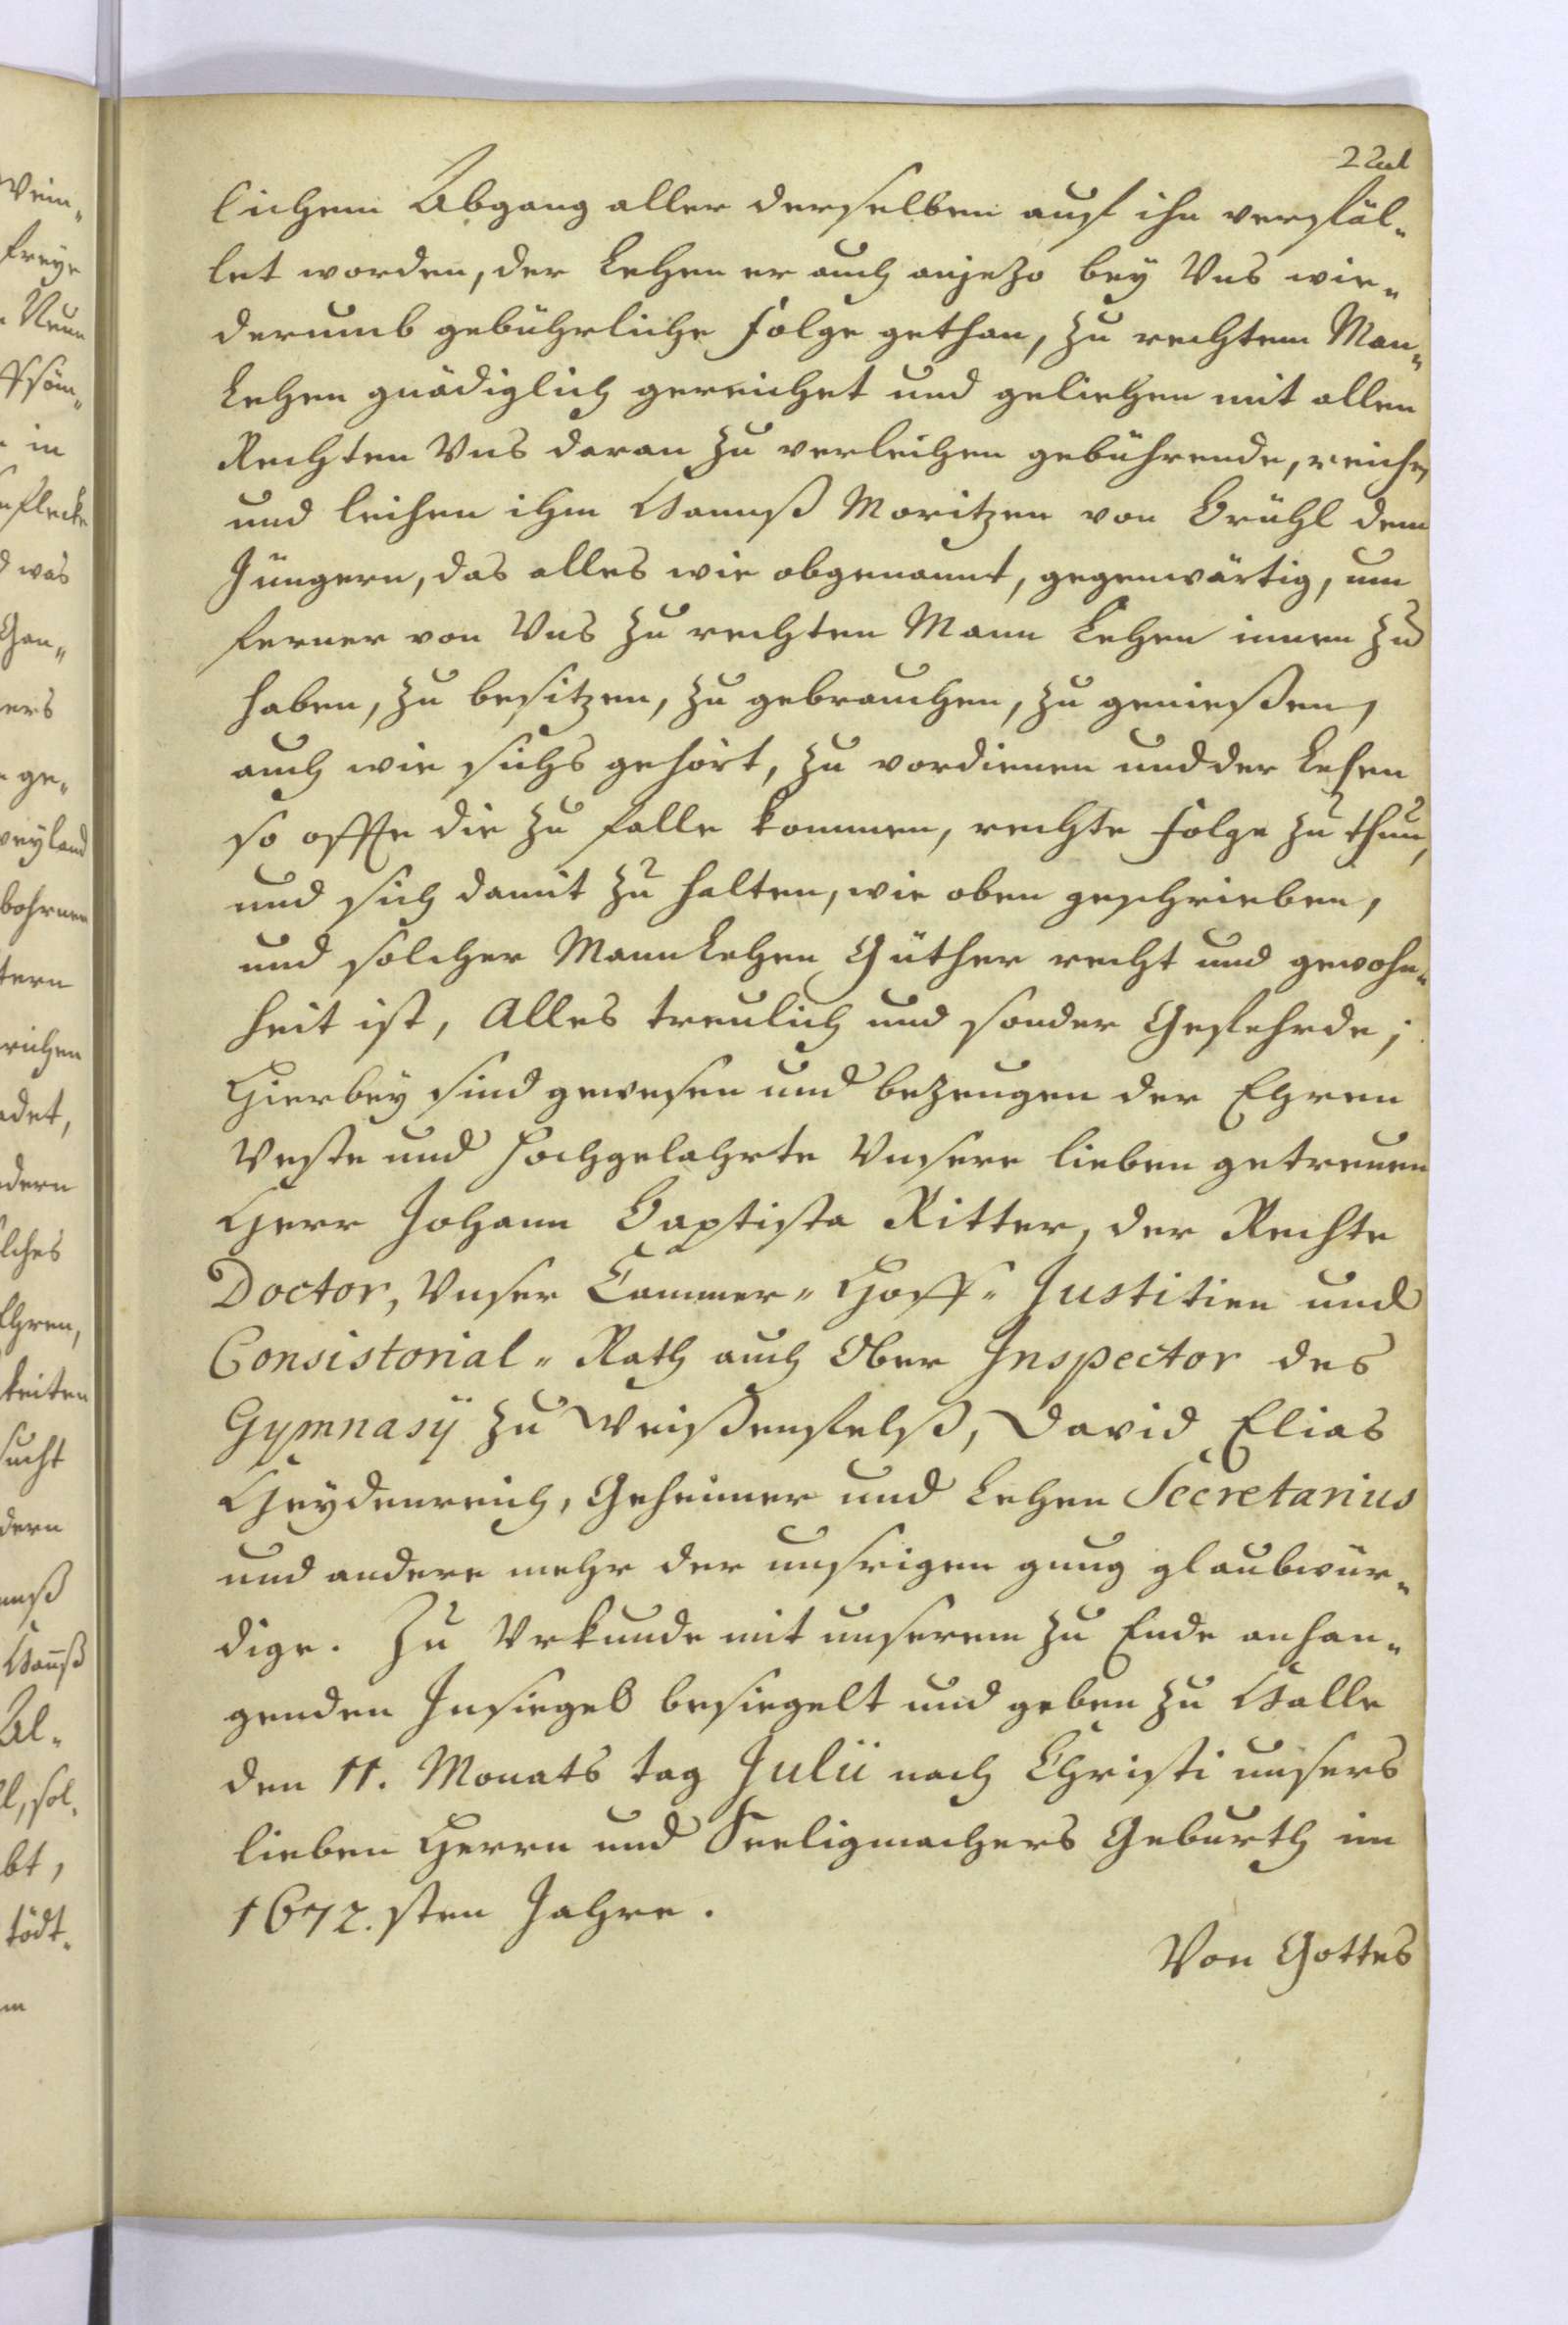 lichem Abgang aller derselben auf ihn verfäl-
let worden, der Lehen er auch anjezo bey Uns wie-
derumb gebührliche Folge gethan, zu rechtem Man-
Lehen gnädiglich gereichet und geliehen mit allen
Rechten Uns daran zu verleihen gebührende, reichen
und leihen ihm Hannß Moritzen von Brühl dem
Jüngern, das alles wie obgenannt, gegenwärtig, um
ferner von Uns zu rechten Mann Lehen innen zu
haben, zu besitzen, zu gebrauchen, zu genießen,
auch wie sichs gehört, zu vordienen und der Lehen
so offte die zu falle kommen, rechte Folge zu thun,
und sich damit zu halten, wie oben geschrieben,
und solcher Mann Lehen Güther recht und gewohn-
heit ist, Alles treulich und sonder Gefehrde;
Hierbey sind gewesen und bezeugen der Ehren
Veste und Hochgelahrte Unsere lieben getreuen
Herr Johann Baptista Ritter, der Rechte
Doctor, Unser Cammer- Hoff- Justitien und
Consistorial- Rath auch Ober Inspector des
Gymnasij zu Weißenfelß, David Elias
Heydenreich, Geheimer und Lehen Secretarius
und andere mehr der unsrigen gnug glaubwür-
dige. Zu Urkunde mit unserem zu Ende anhan-
genden Insiegel besiegelt und geben zu Halle
den 11. Monats tag Julii nach Christi unsers
lieben Herrn und Seeligmachers Geburth im
1672.sten Jahre.
Von Gottes
Wein-
freye
Neun
in
was
Gan-
ers
ge-
weyland
bohrnen
tern
richen
adet,
dern
lches
Ehren,
keiten
sucht
dern
Hannß
Al-
l, sol-
bt,
tödt-